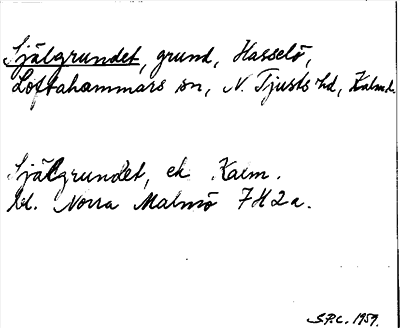 Själgrundet, grund, Hasselö,
Loftahammars sn, N. Tjusts hd, Kalm. l.
Själgrundet, ek. Kalm.
bl. Norra Malmö 7H2a.
S.P.C. 1959.